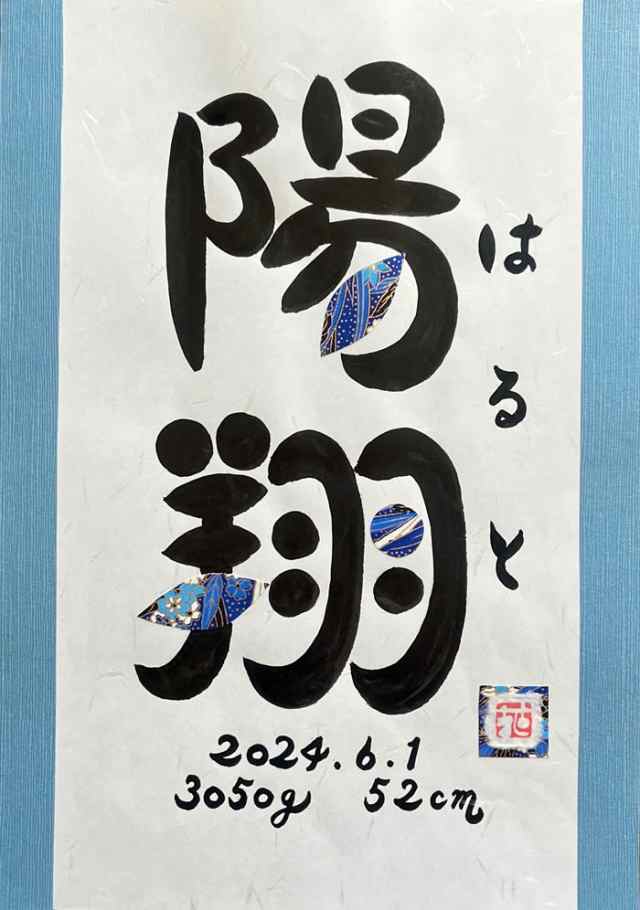 陽翔
はると
2024.6.1
3050g 52cm